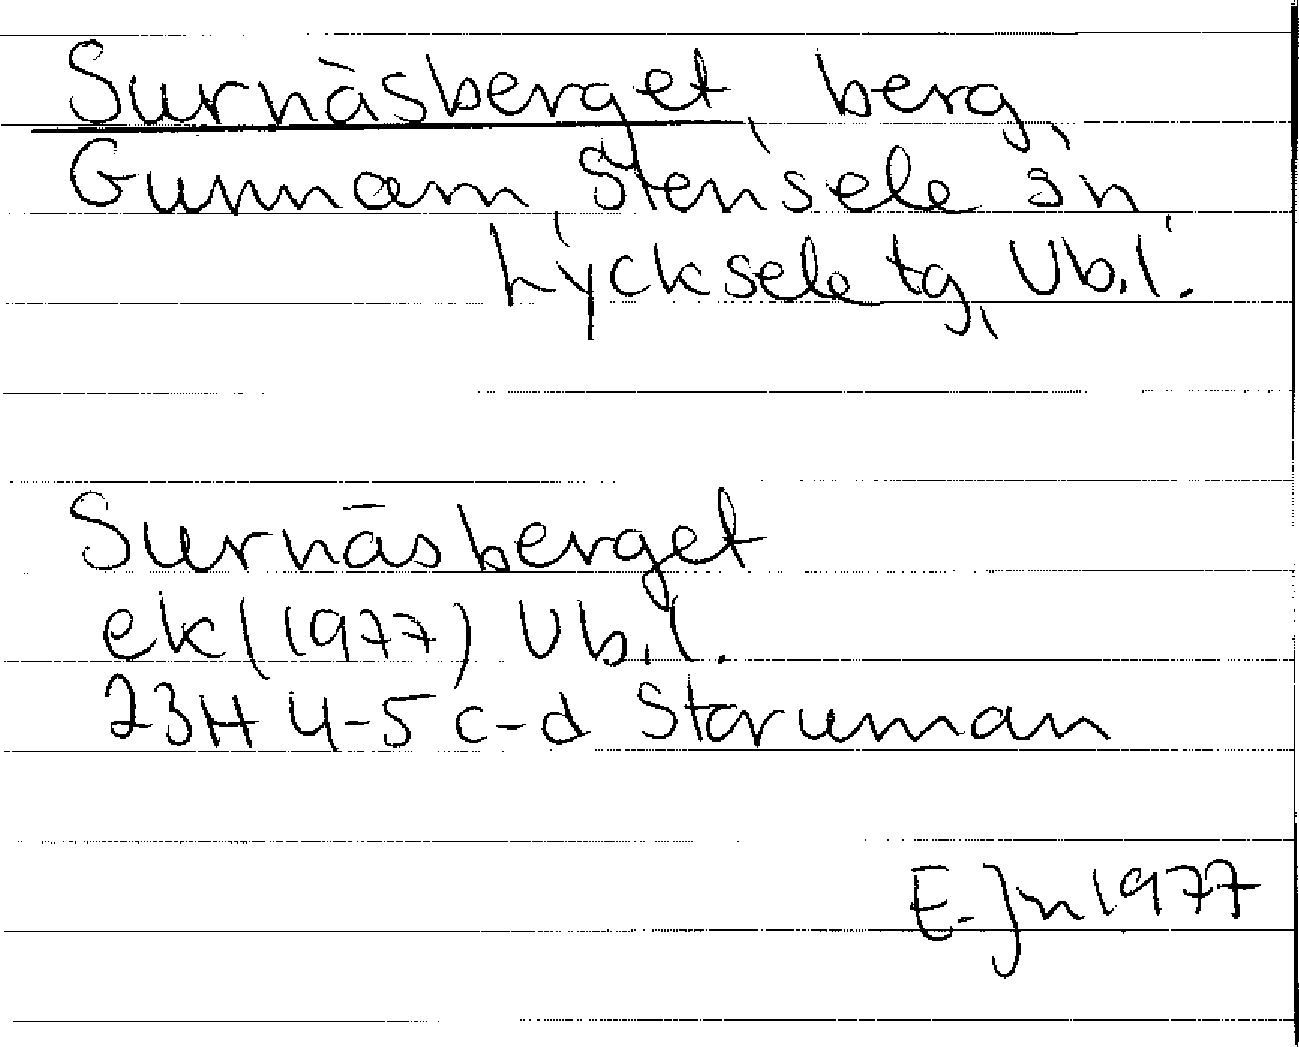 Surnäsberget, berg,
Gunnarn, Stensele sn,
Lycksele tg, Vb.l.
Surnäsberget
ek (1977) Vb.l.
23H 4-5 c-d Storuman
E. Jn 1977